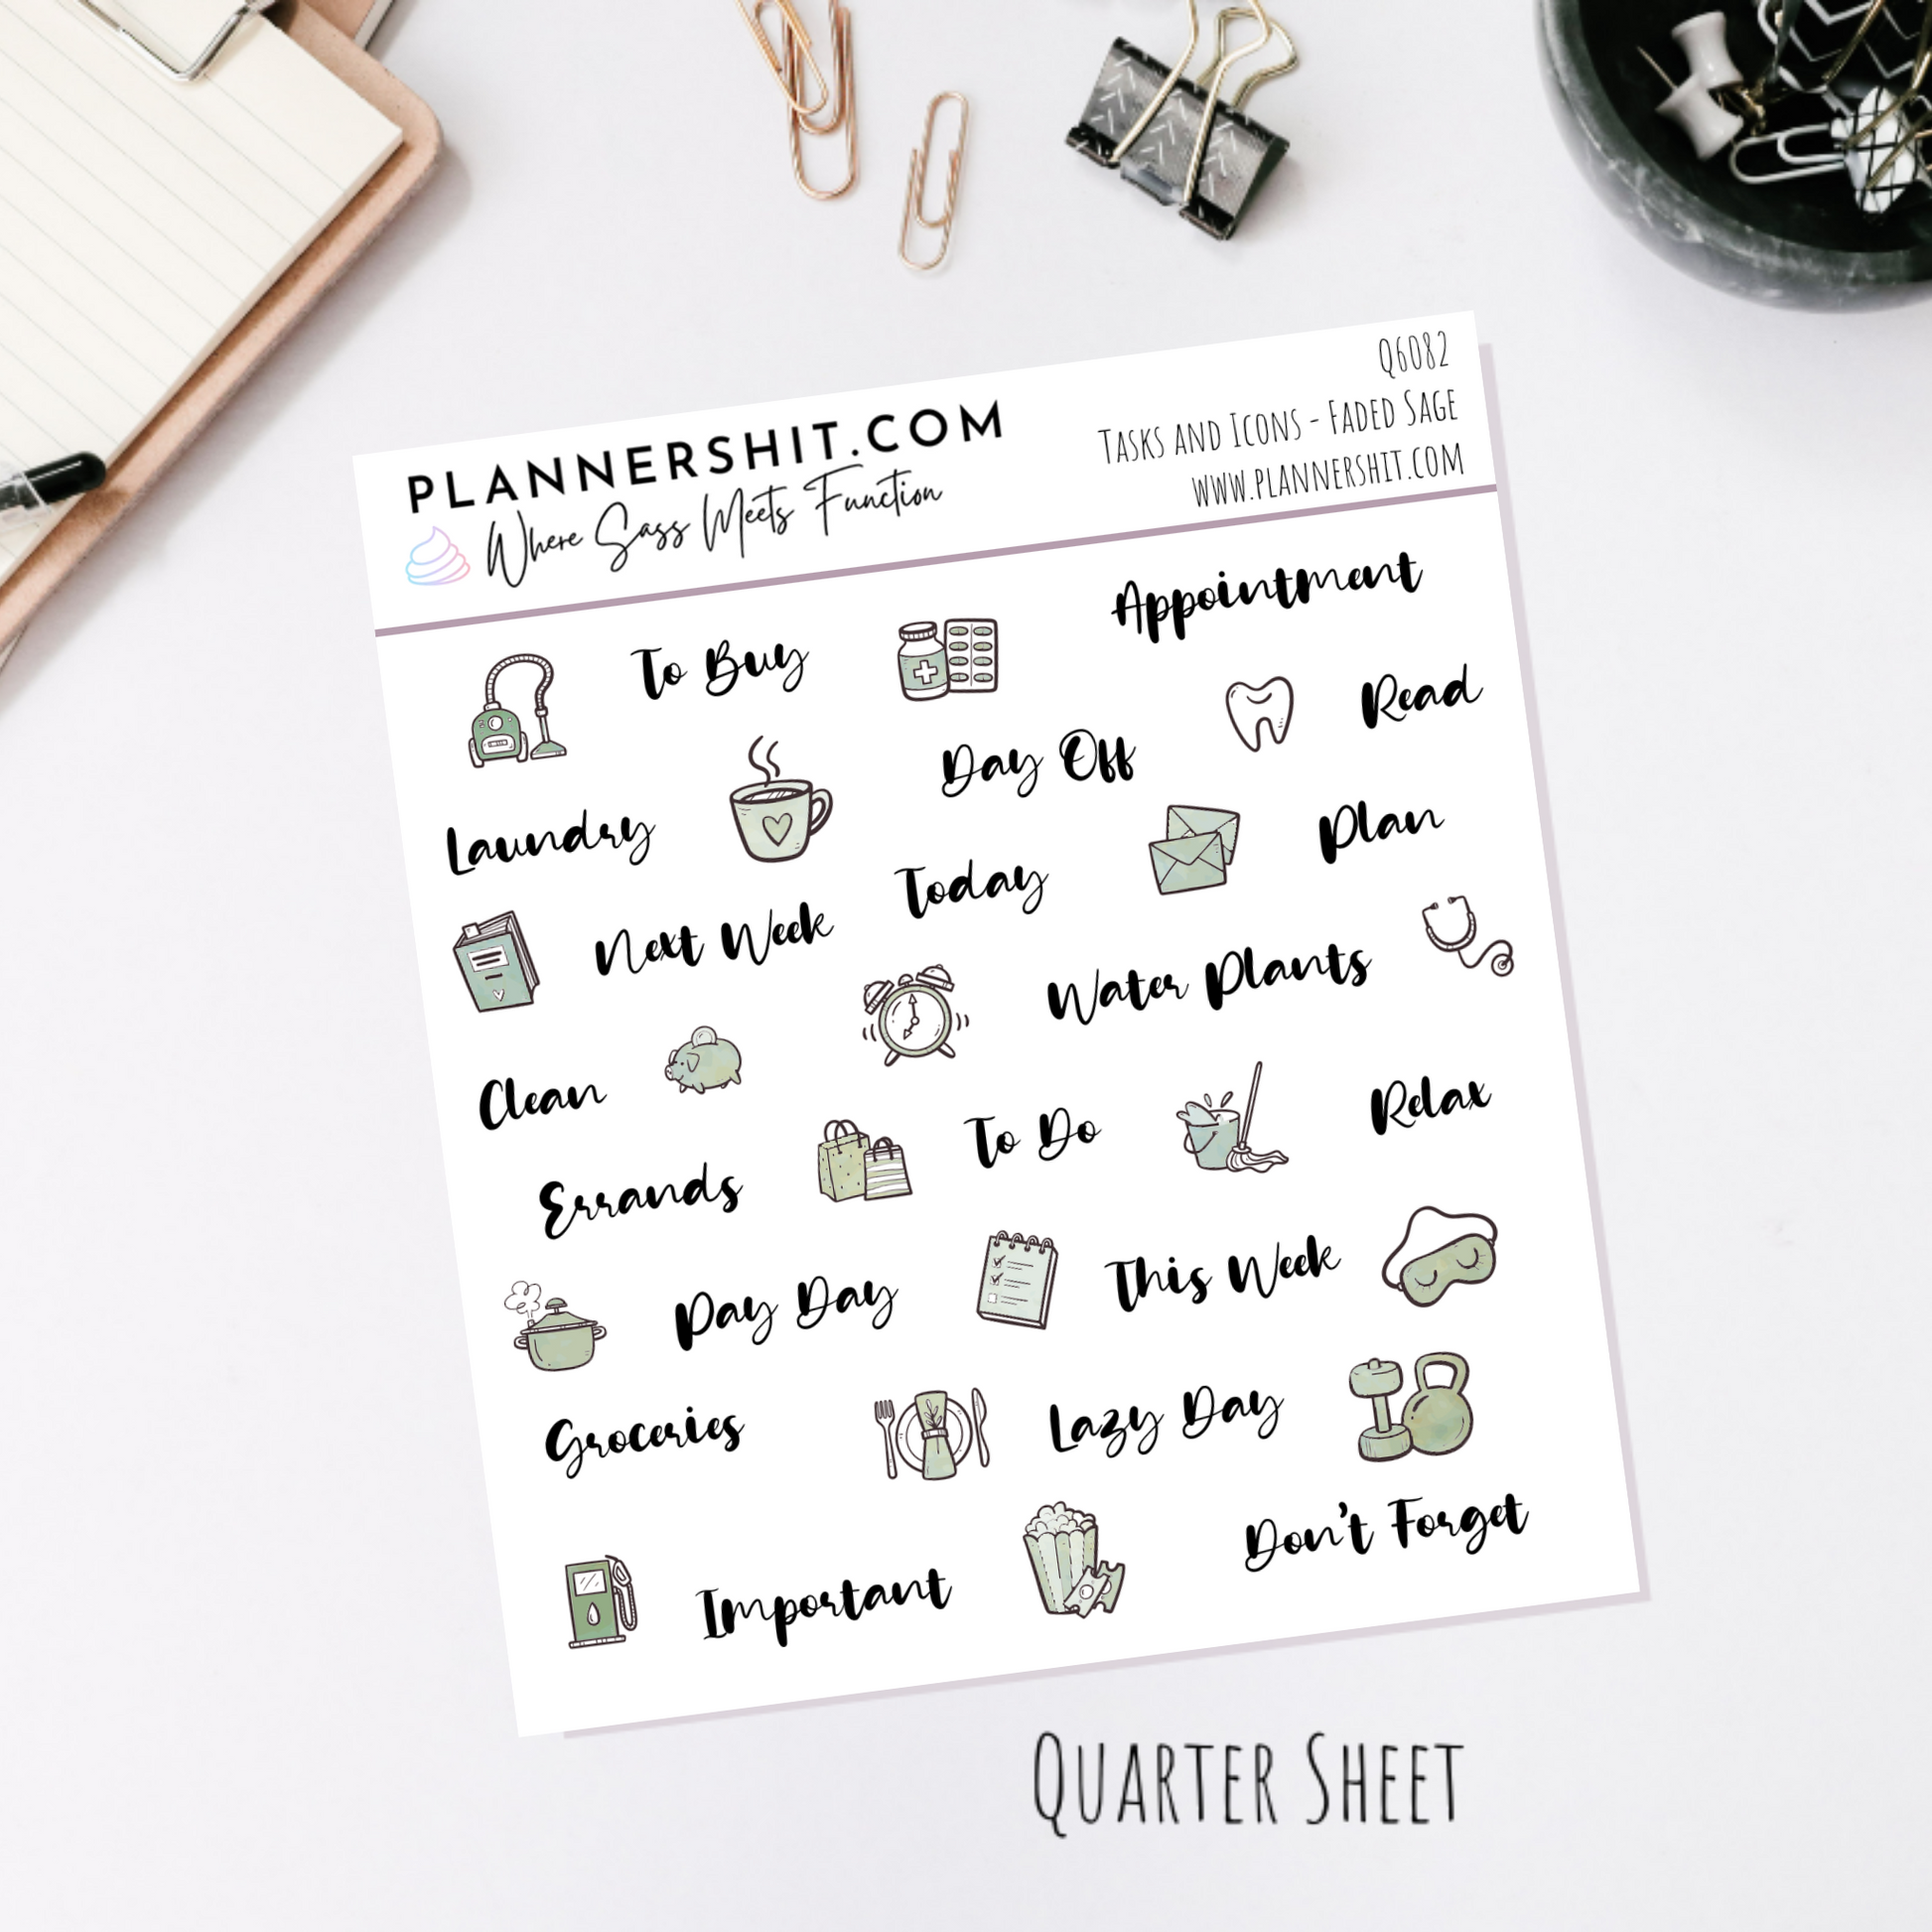 PLANNERSHIT.COM
Where Sass Meets Function
Q6082
Tasks and Icons - Faded Sage
www.plannershit.com
Appointment
To Buy
Read
Day Off
Laundry
Plan
Today
Next Week
Water Plants
Clean
Relax
To Do
Errands
This Week
Pay Day
Lazy Day
Groceries
Don't Forget
Important
Quarter Sheet